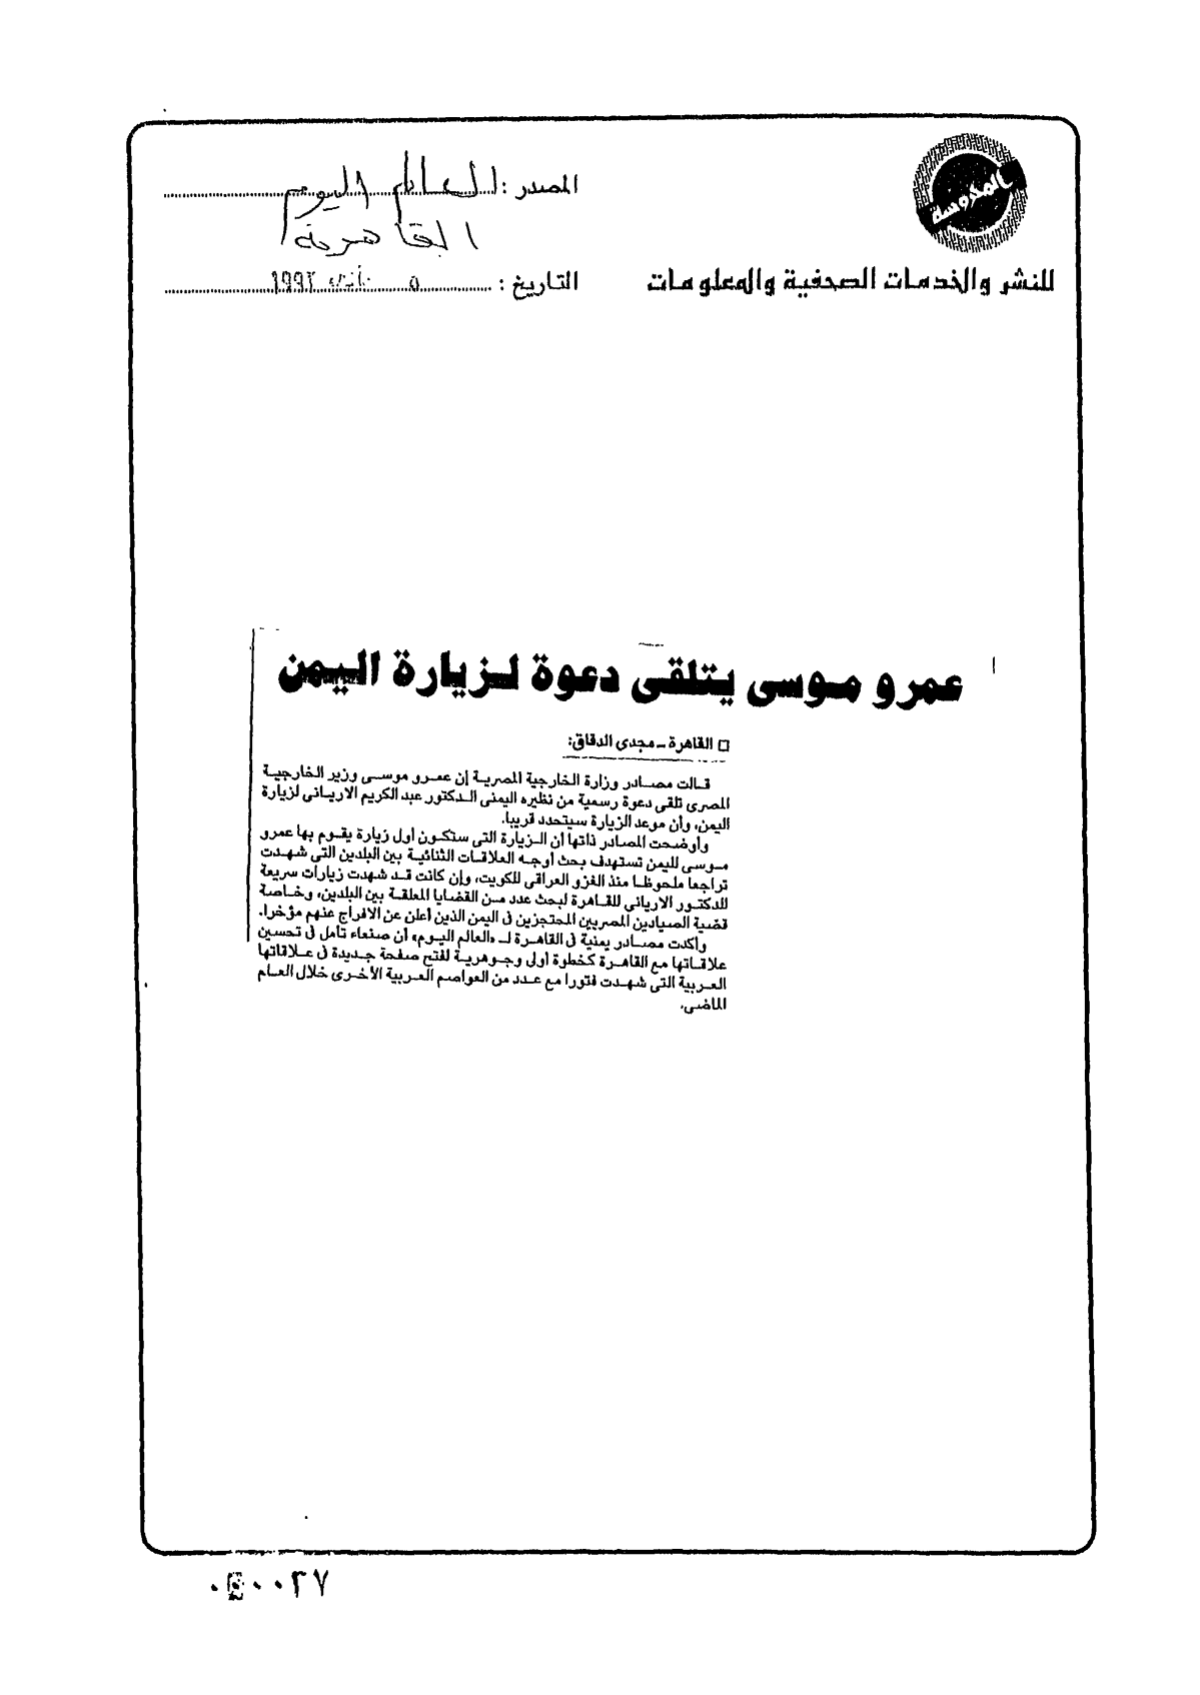 المدوسة
للنشر والخدمات الصحفية والمعلومات
المصدر : العالم اليوم
القاهرية
التاريخ : ٥ ١٩٩٢
عمرو موسى يتلقى دعوة لزيارة اليمن
□ القاهرة ـ مجدى الدقاق:
قالت مصادر وزارة الخارجية المصرية إن عمرو موسى وزير الخارجية
المصرى تلقى دعوة رسمية من نظيره اليمنى الدكتور عبد الكريم الاريانى لزيارة
اليمن، وأن موعد الزيارة سيتحدد قريبا.
وأوضحت المصادر ذاتها أن الزيارة التى ستكون أول زيارة يقوم بها عمرو
موسى لليمن تستهدف بحث أوجه العلاقات الثنائية بين البلدين التى شهدت
تراجعا ملحوظا منذ الغزو العراقى للكويت، وإن كانت قد شهدت زيارات سريعة
للدكتور الاريانى للقاهرة لبحث عدد من القضايا المعلقة بين البلدين، وخاصة
قضية الصيادين المصريين المحتجزين فى اليمن الذين أعلن عن الافراج عنهم مؤخرا.
وأكدت مصادر يمنية فى القاهرة لـ «العالم اليوم» أن صنعاء تأمل فى تحسين
علاقاتها مع القاهرة كخطوة أولى وجوهرية لفتح صفحة جديدة فى علاقاتها
العربية التى شهدت فتورا مع عدد من العواصم العربية الأخرى خلال العام
الماضى.